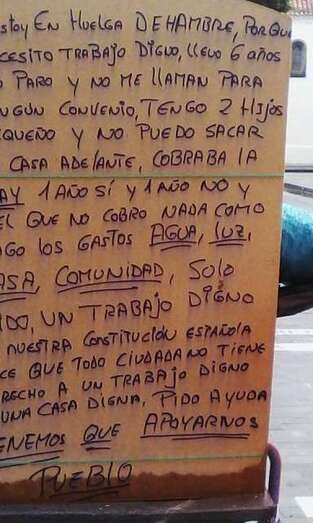 stoy EN HUELGA DE HAMBRE, PORQU
CESITO TRABAJO DIGNO, LLEVO 6 AÑOS
PARO Y NO ME LLAMAN PARA
NGÚN CONVENIO, TENGO 2 HIJOS
QUEÑO Y NO PUEDO SACAR
CASA ADELANTE, COBRABA LA
AY 1 AÑO SÍ Y 1 AÑO NO Y
EL QUE NO COBRO NADA COMO
AGO LOS GASTOS AGUA, LUZ,
ASA, COMUNIDAD, SOLO
IDO, UN TRABAJO DIGNO
NUESTRA CONSTITUCIÓN ESPAÑOLA
CE QUE TODO CIUDADANO TIENE
RECHO A UN TRABAJO DIGNO
UNA CASA DIGNA, PIDO AYUDA
ENEMOS QUE APOYARNOS
PUEBLO